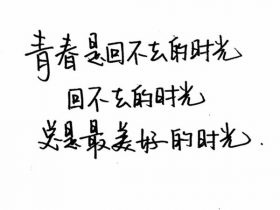 青春是回不去的时光
回不去的时光
总是最美好的时光.